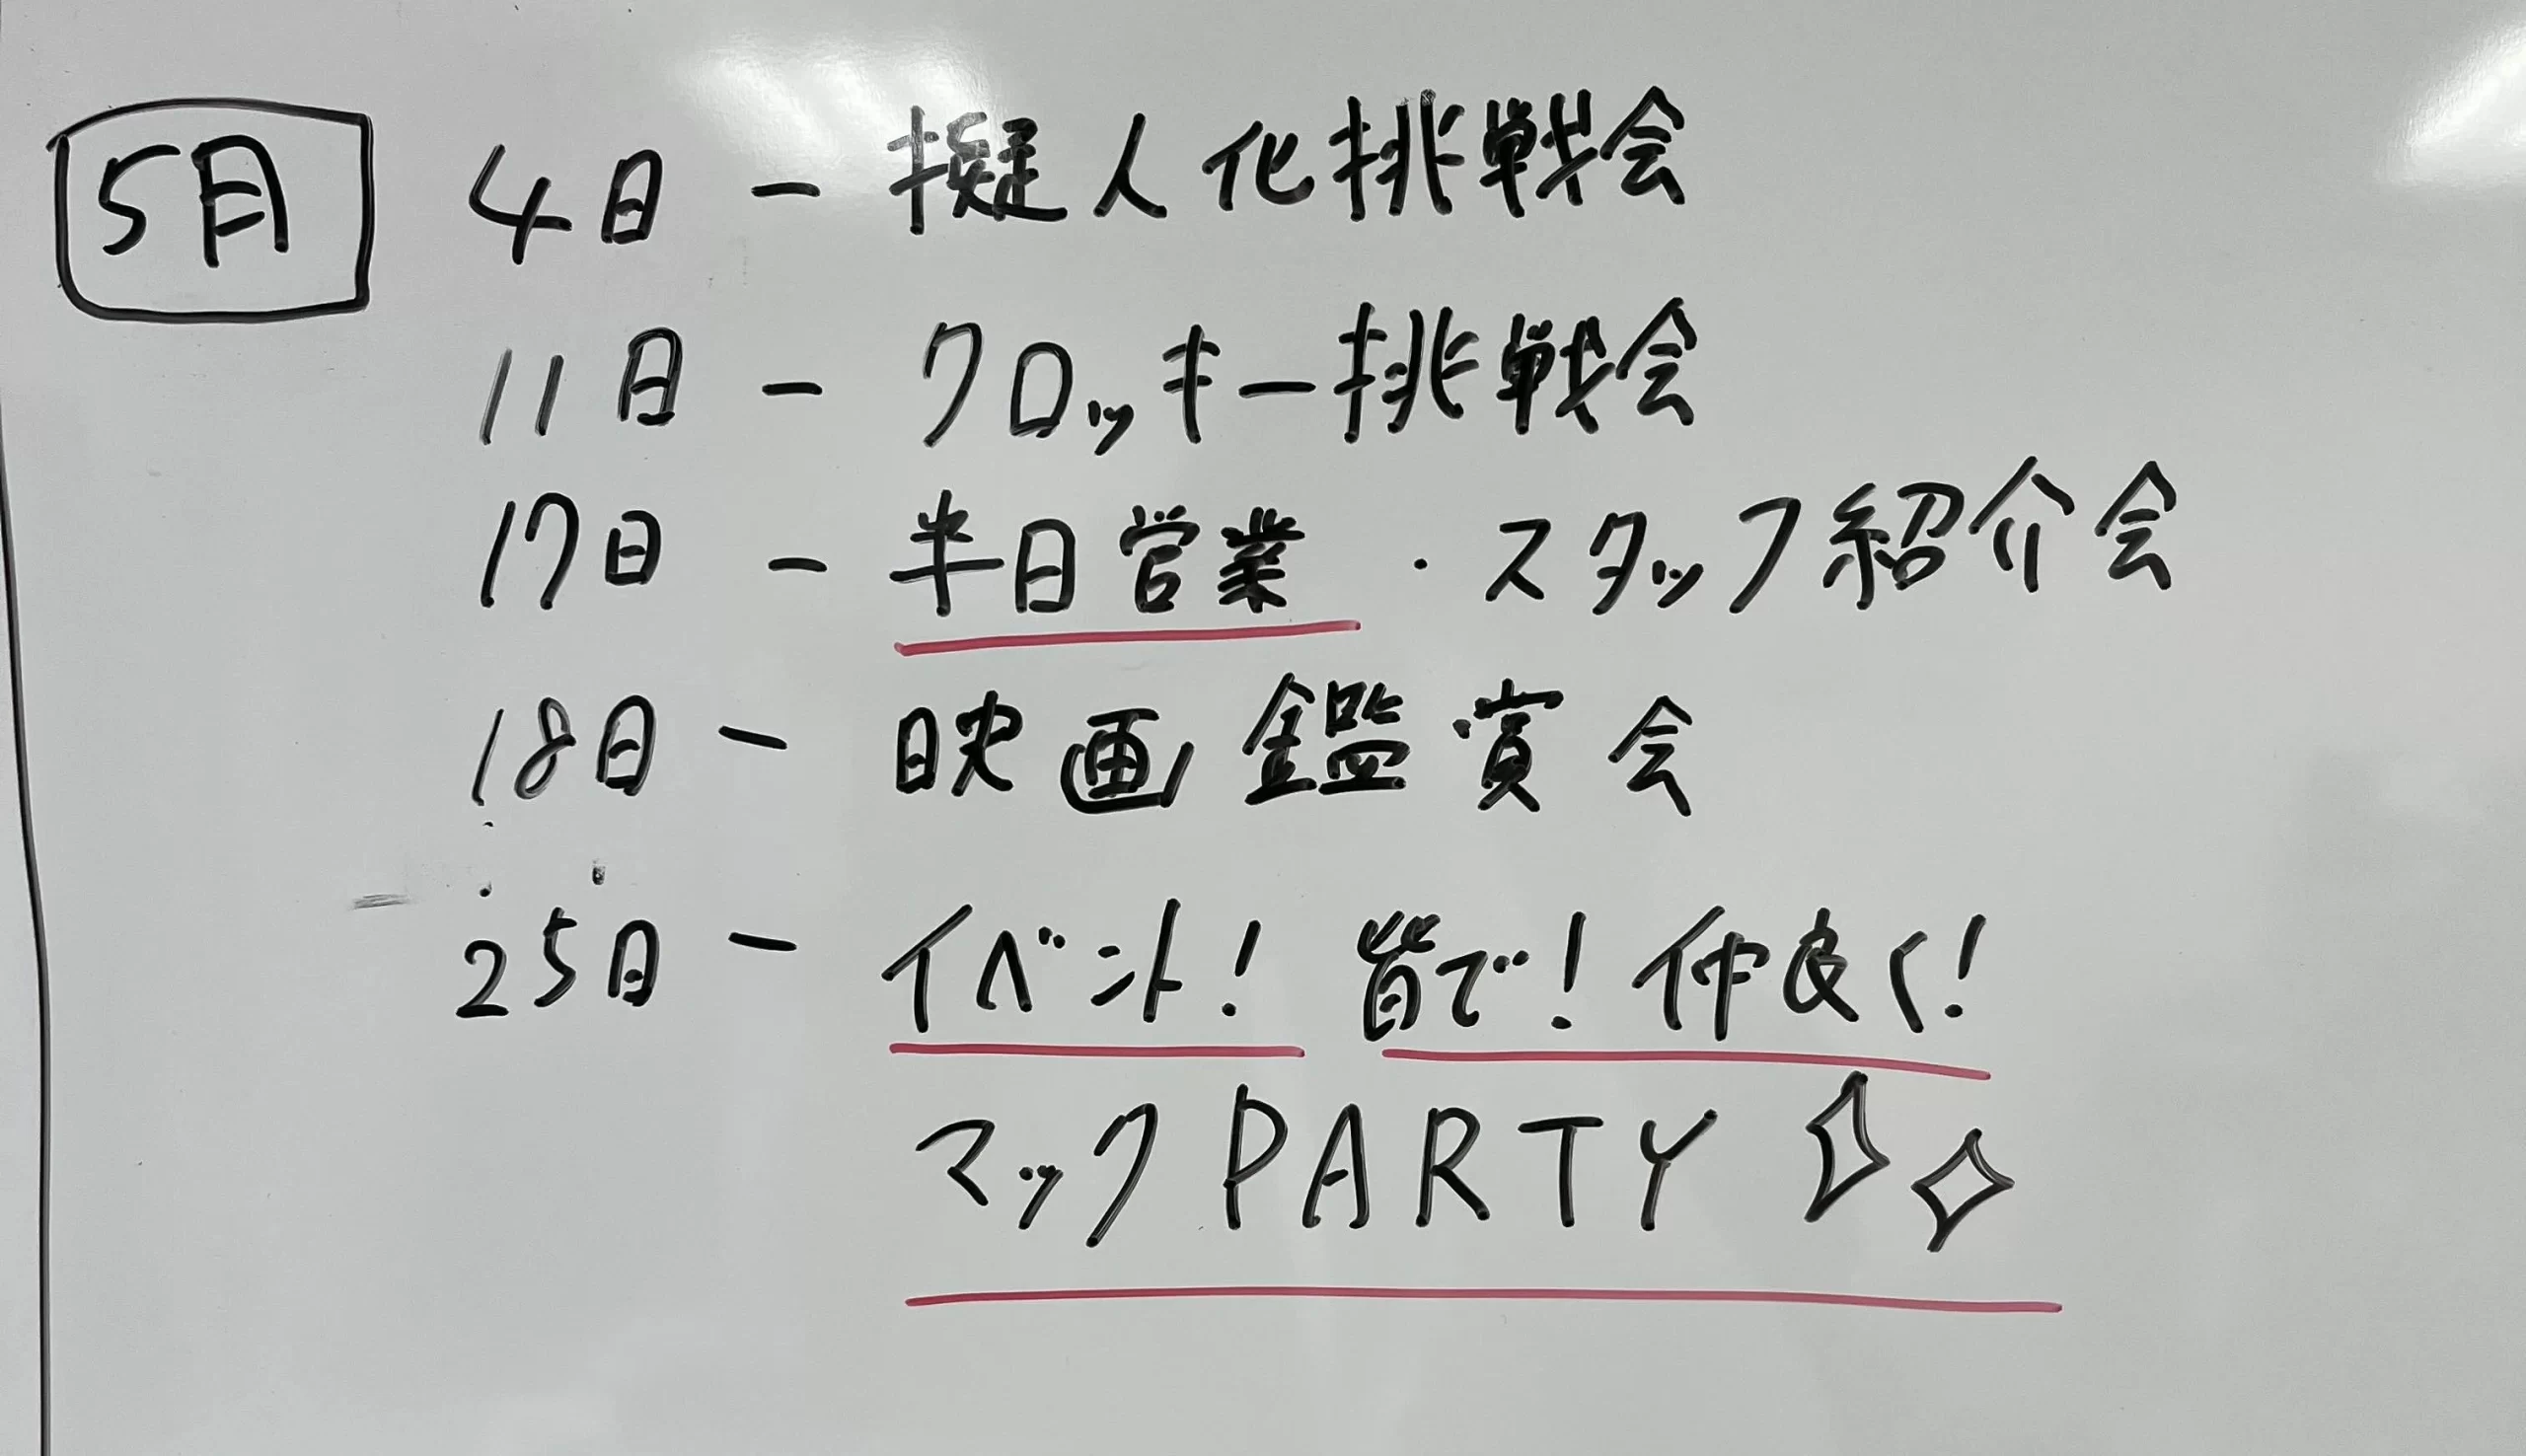 5月
4日 - 擬人化挑戦会
11日 - クロッキー挑戦会
17日 - 半日営業 ・ スタッフ紹介会
18日 - 映画鑑賞会
25日 - イベント! 皆で! 仲良く!
マックPARTY